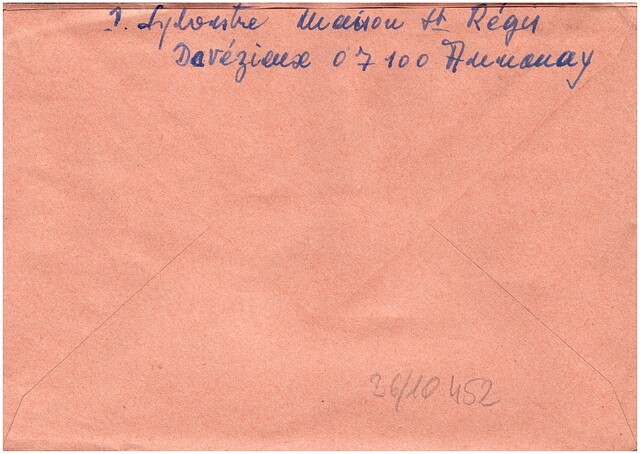 P. Sylvestre Maison St Régis
Davézieux 07100 Annonay
36/10 452